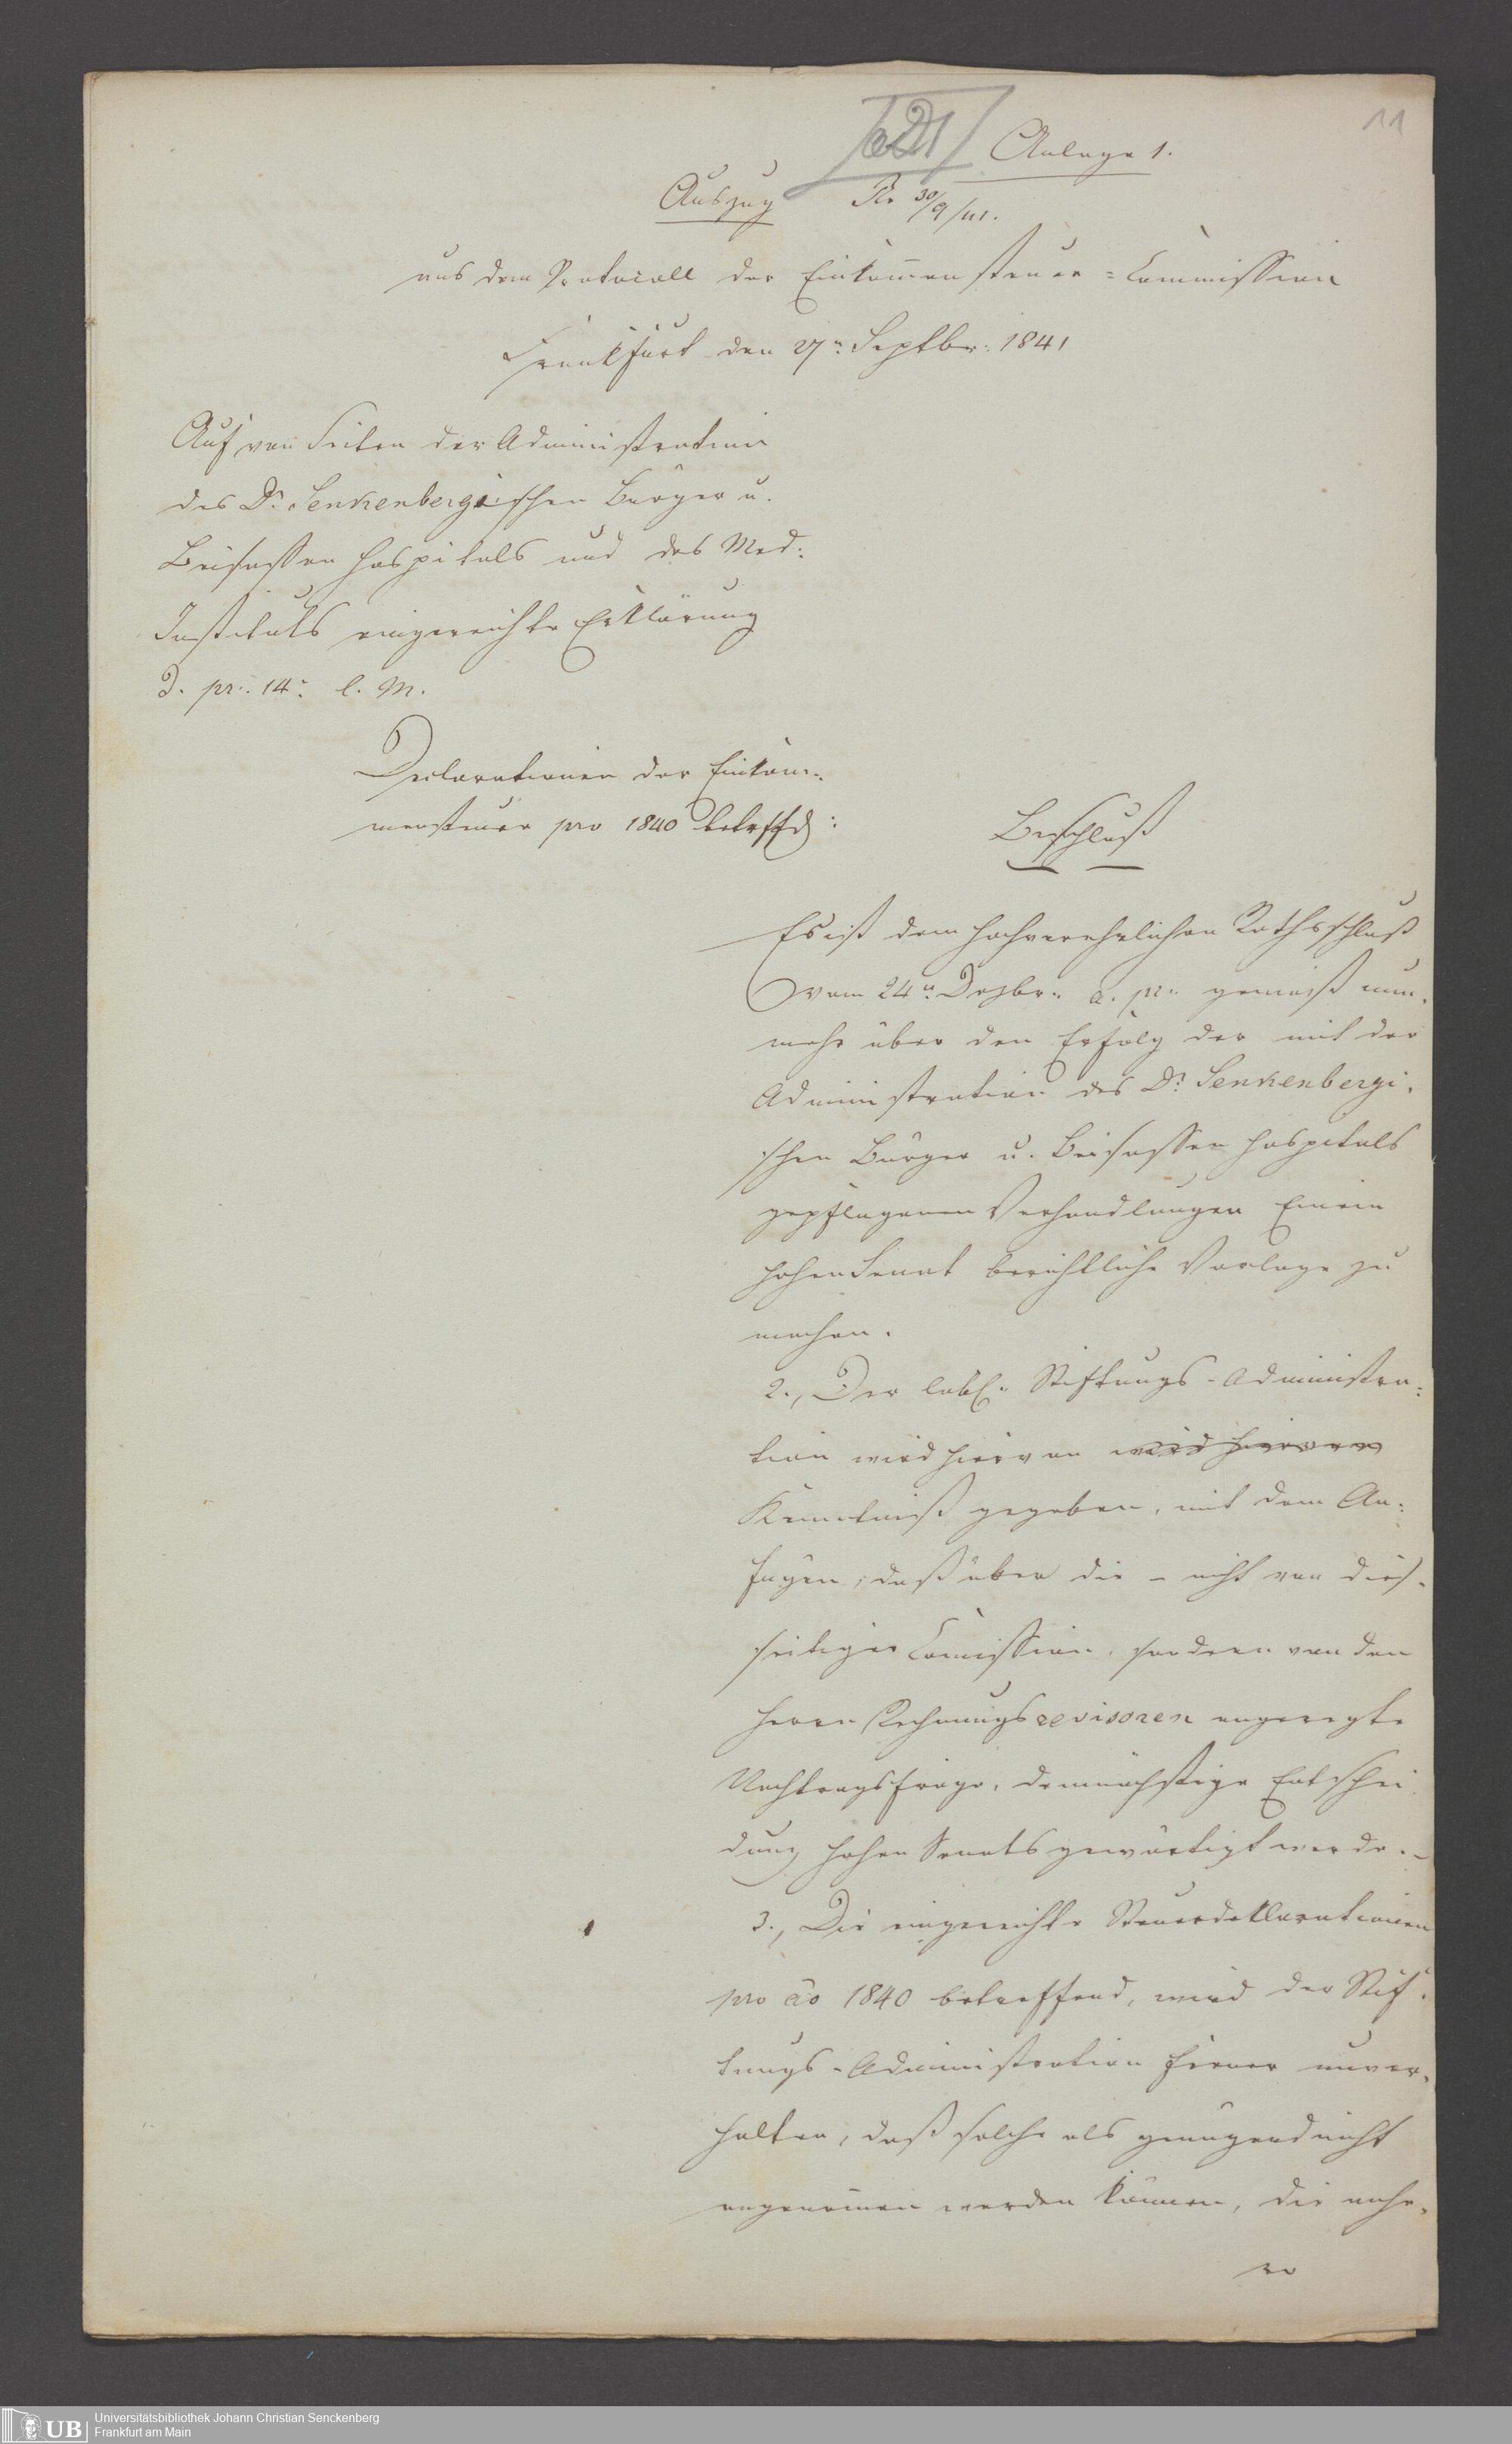 11
Anlage 1.
Auszug Pr 30/9/41.
aus dem Protocoll der Einkom̄ensteuer=Commission
Frankfurt den 27n Septbr: 1841
Auf von Seiten der Administration
des Dr. Senkenbergischen Bürger u.
Beisassen Hospitals und des Med:
Instituts eingereichte Erklärung
d. pr: 14n l. M.
Declarationen der Einkom=
mensteuer pro 1840 betreffd:
Beschluß
Es ist dem hochverehrlichen Rathsschluß
vom 24n Dezbr: a. pr: gemäß nun=
mehr über den Erfolg der mit der
Administration des Dr. Senkenbergi=
schen Bürger u. Beisassen Hospitals
gepflogenen Verhandlungen Einem
hohen Senat berichtliche Vorlage zu
machen.
2., Der löbl: Stiftungs-Administra=
tion wird hiervon wird hiervon
Kenntniß gegeben, mit dem An=
fügen, daß über die - nicht von dies=
seitiger Com̄ission, sondern von den
Herrn Rechnungsrevisoren angeregte
Nachtragsfrage, demnächstige Entschei
dung hohen Senats gewärtigt werde.-
3., Die eingereichte Steuerdeklarationen
pro ao 1840 betreffend, wird der Stif=
tungs-Administration ferner unver=
halten, daß solche als genügend nicht
angenom̄en werden können, die nähe=
re
UB
Universitätsbibliothek Johann Christian Senckenberg
Frankfurt am Main